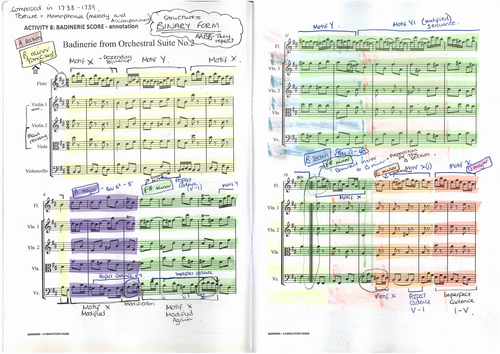 Composed in 1738-1739.
Texture = Homophonic (melody and accompaniment)
Structure =
BINARY FORM
AABB - They repeat
ACTIVITY 8: BADINERIE SCORE - annotation
A section
B minor
Tonic key
Badinerie from Orchestral Suite No.2
Motif X
Descending sequence
Motif Y
Motif X
Flute
Violin 1
Violin 2
Viola
Violoncello
A major - Bar 6
F# minor
Perfect cadence
V-I
Motif Y
Fl.
Vln. 1
Vln. 2
Vla.
Vc.
Perfect cadence V-I
Imperfect cadence
Motif X
Modified
modification
Motif X
Modified
Again
BADINERIE
Motif Y
Motif Y1 (modified)
sequence
Fl.
Vln. 1
Vln. 2
Vla.
Vc.
B Section
F# minor
Dominant minor
to B minor
B Section
E minor
Motif X
Motif X
D major
Motif X
Fl.
Vln. 1
Vln. 2
Vla.
Vc.
Motif X
Perfect
Cadence
V-I
Imperfect
Cadence
I-V
BADINERIE